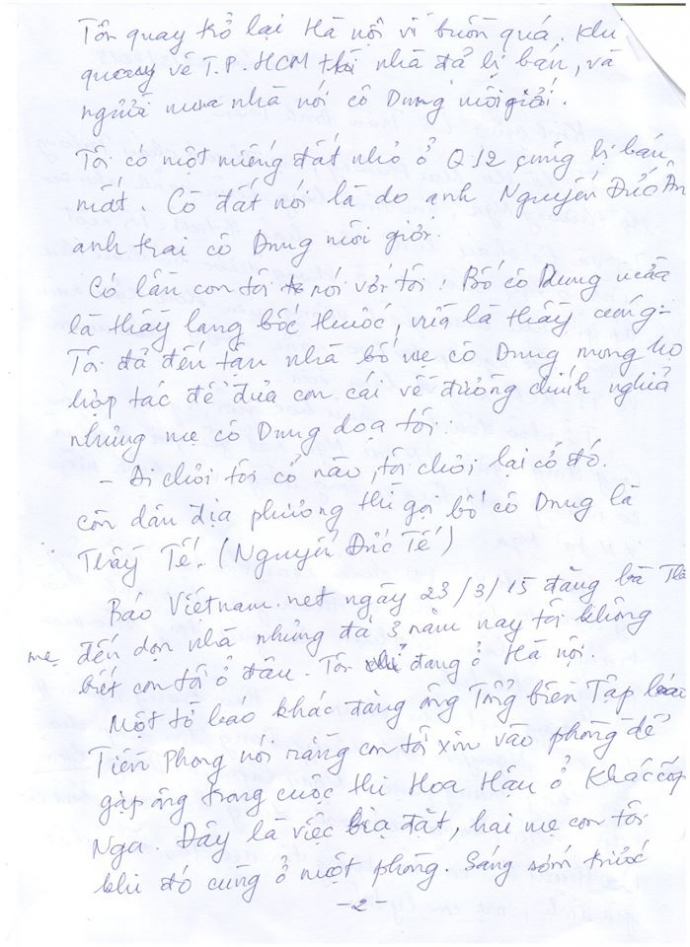 Tôi quay trở lại Hà nội vì buồn quá. Khi
quay về T.P. HCM thì nhà đã bị bán, và
người mua nhà nói cô Dung môi giới.
Tôi có một miếng đất nhỏ ở Q12 cũng bị bán
mất. Cò đất nói là do anh Nguyễn Đức An
anh trai cô Dung môi giới.
Có lần con tôi nói với tôi: Bố cô Dung vừa
là thầy lang bốc thuốc, vừa là thầy cúng.
Tôi đã đến tận nhà bố mẹ cô Dung mong họ
hợp tác để đưa con cái về đường chính nghĩa
nhưng mẹ cô Dung dọa tôi.
- Ai chơi tôi cỏ nào, tôi chơi lại cỏ đó.
Còn dân địa phương thì gọi bố cô Dung là
Thầy Tế. (Nguyễn Đức Tế)
Báo Vietnam.net ngày 23/3/15 đăng bà
mẹ đến dọn nhà nhưng đã 3 năm nay tôi không
biết con tôi ở đâu. Tôi đang ở Hà nội.
Một tờ báo khác đăng ông Tổng biên Tập báo
Tiền Phong nói rằng con tôi xin vào phòng để
gặp ông trong cuộc thi Hoa Hậu ở
Nga. Đây là việc bịa đặt, hai mẹ con tôi
khi đó cùng ở một phòng. Sáng sớm trước
-2-